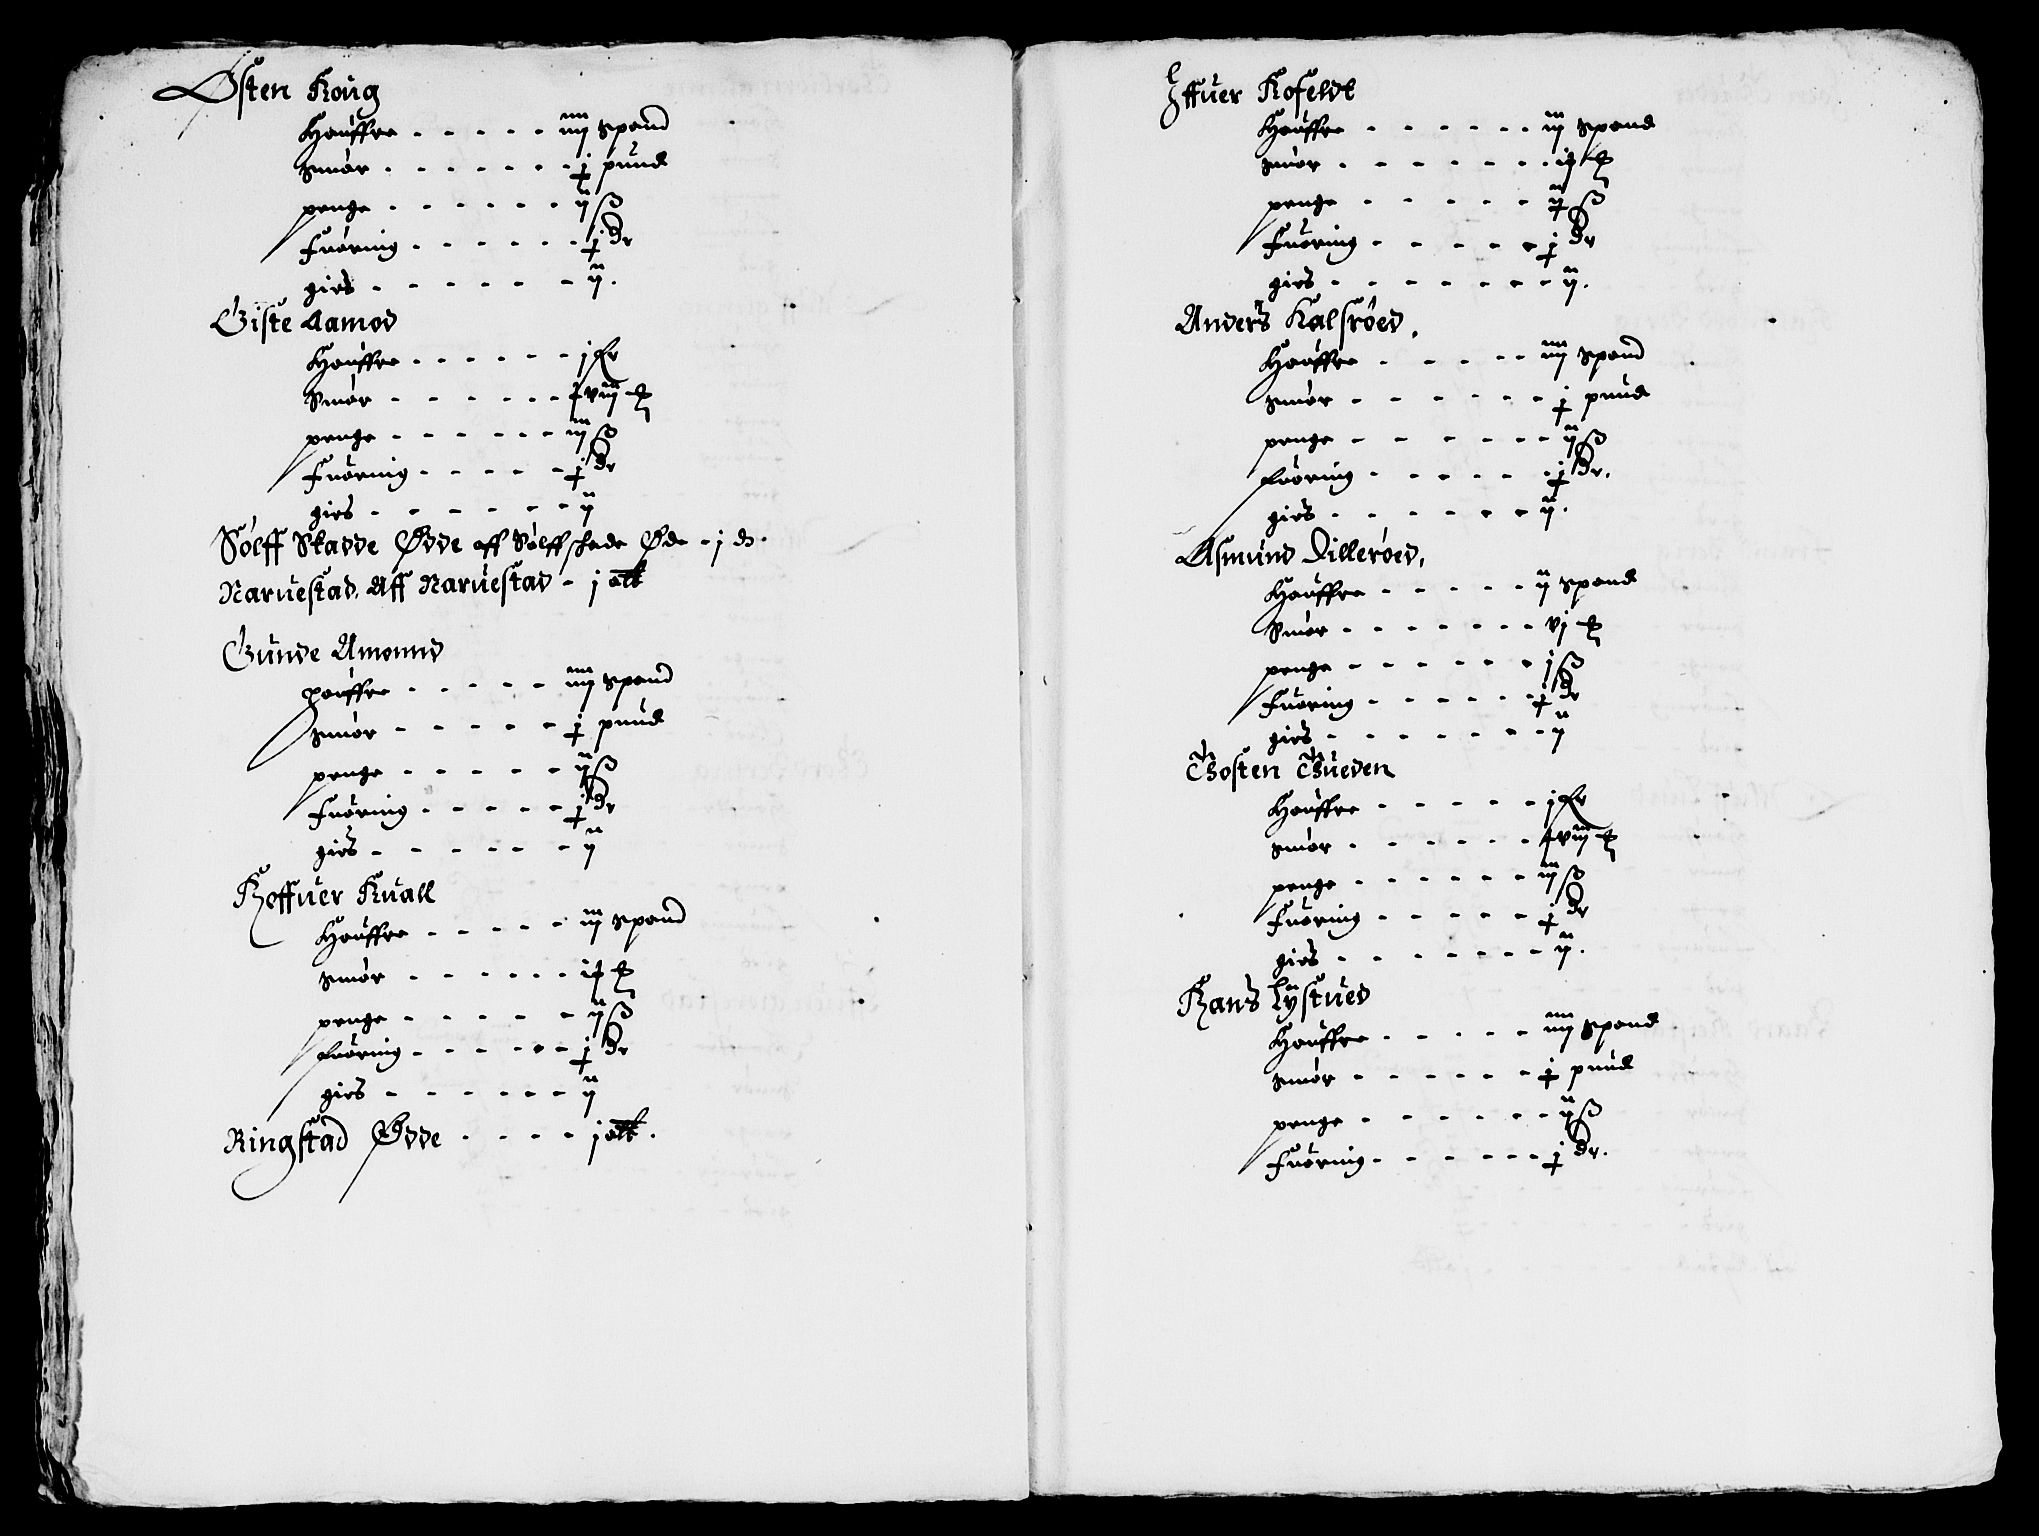 Østen Roug
Hauffre - - - - - iiij spand
smør - - - - - - j pund
penge - - - - - - ij ß
Fuöring - - - - - - j dr
gies - - - - - - ij.
Giste Aamod
Hauffre - - - - - - j
Smør - - - - - - viij
penge - - - - - - iij ß
Fuöring - - - - - j dr
gies - - - - - - ij
Sölff Skadde Ødde aff Sölffskade Øde - j
Naruestad. Aff Naruestad - j ott
Gunde Amonnd
Hauffre - - - - - iiij spand
smør - - - - - j pund
penge - - - - - ij ß
Fuöring - - - - - j dr
gies - - - - - - ij
Roffuer Kuall
Hauffre - - - - - iij spand
smør - - - - - -
penge - - - - - ij ß
fuöring - - - - - j dr
gies - - - - - - ij
Ringstad Ødde - - - - j ott.
Iffuer Kofeldt
Hauffre - - - - - - iij spand
smør - - - - - - -
penge - - - - - ij ß
Fuöring - - - - - j dr
gies - - - - - - - ij.
Anders Kalsröed.
Hauffre - - - - - iiij spand
smør - - - - - - j pund
penge - - - - - - ij ß
fuöring - - - - - - j dr.
gies - - - - - - ij.
Asmund Dilleröed.
Hauffre - - - - - ij spand
Smør - - - - - - - vj
penge - - - - - - j ß
Fuöring - - - - - - j dr
gies - - - - - - - ij
Tosten Tueden
Hauffre - - - - - j
smør - - - - - - viij
penge - - - - - - iij ß
Fuöring - - - - - j dr
gies - - - - - - - ij.
Hans Lystued
Hauffre - - - - - iiij spand
smør - - - - - - j pund
penge - - - - - - ij ß
Fuöring - - - - - - j dr.